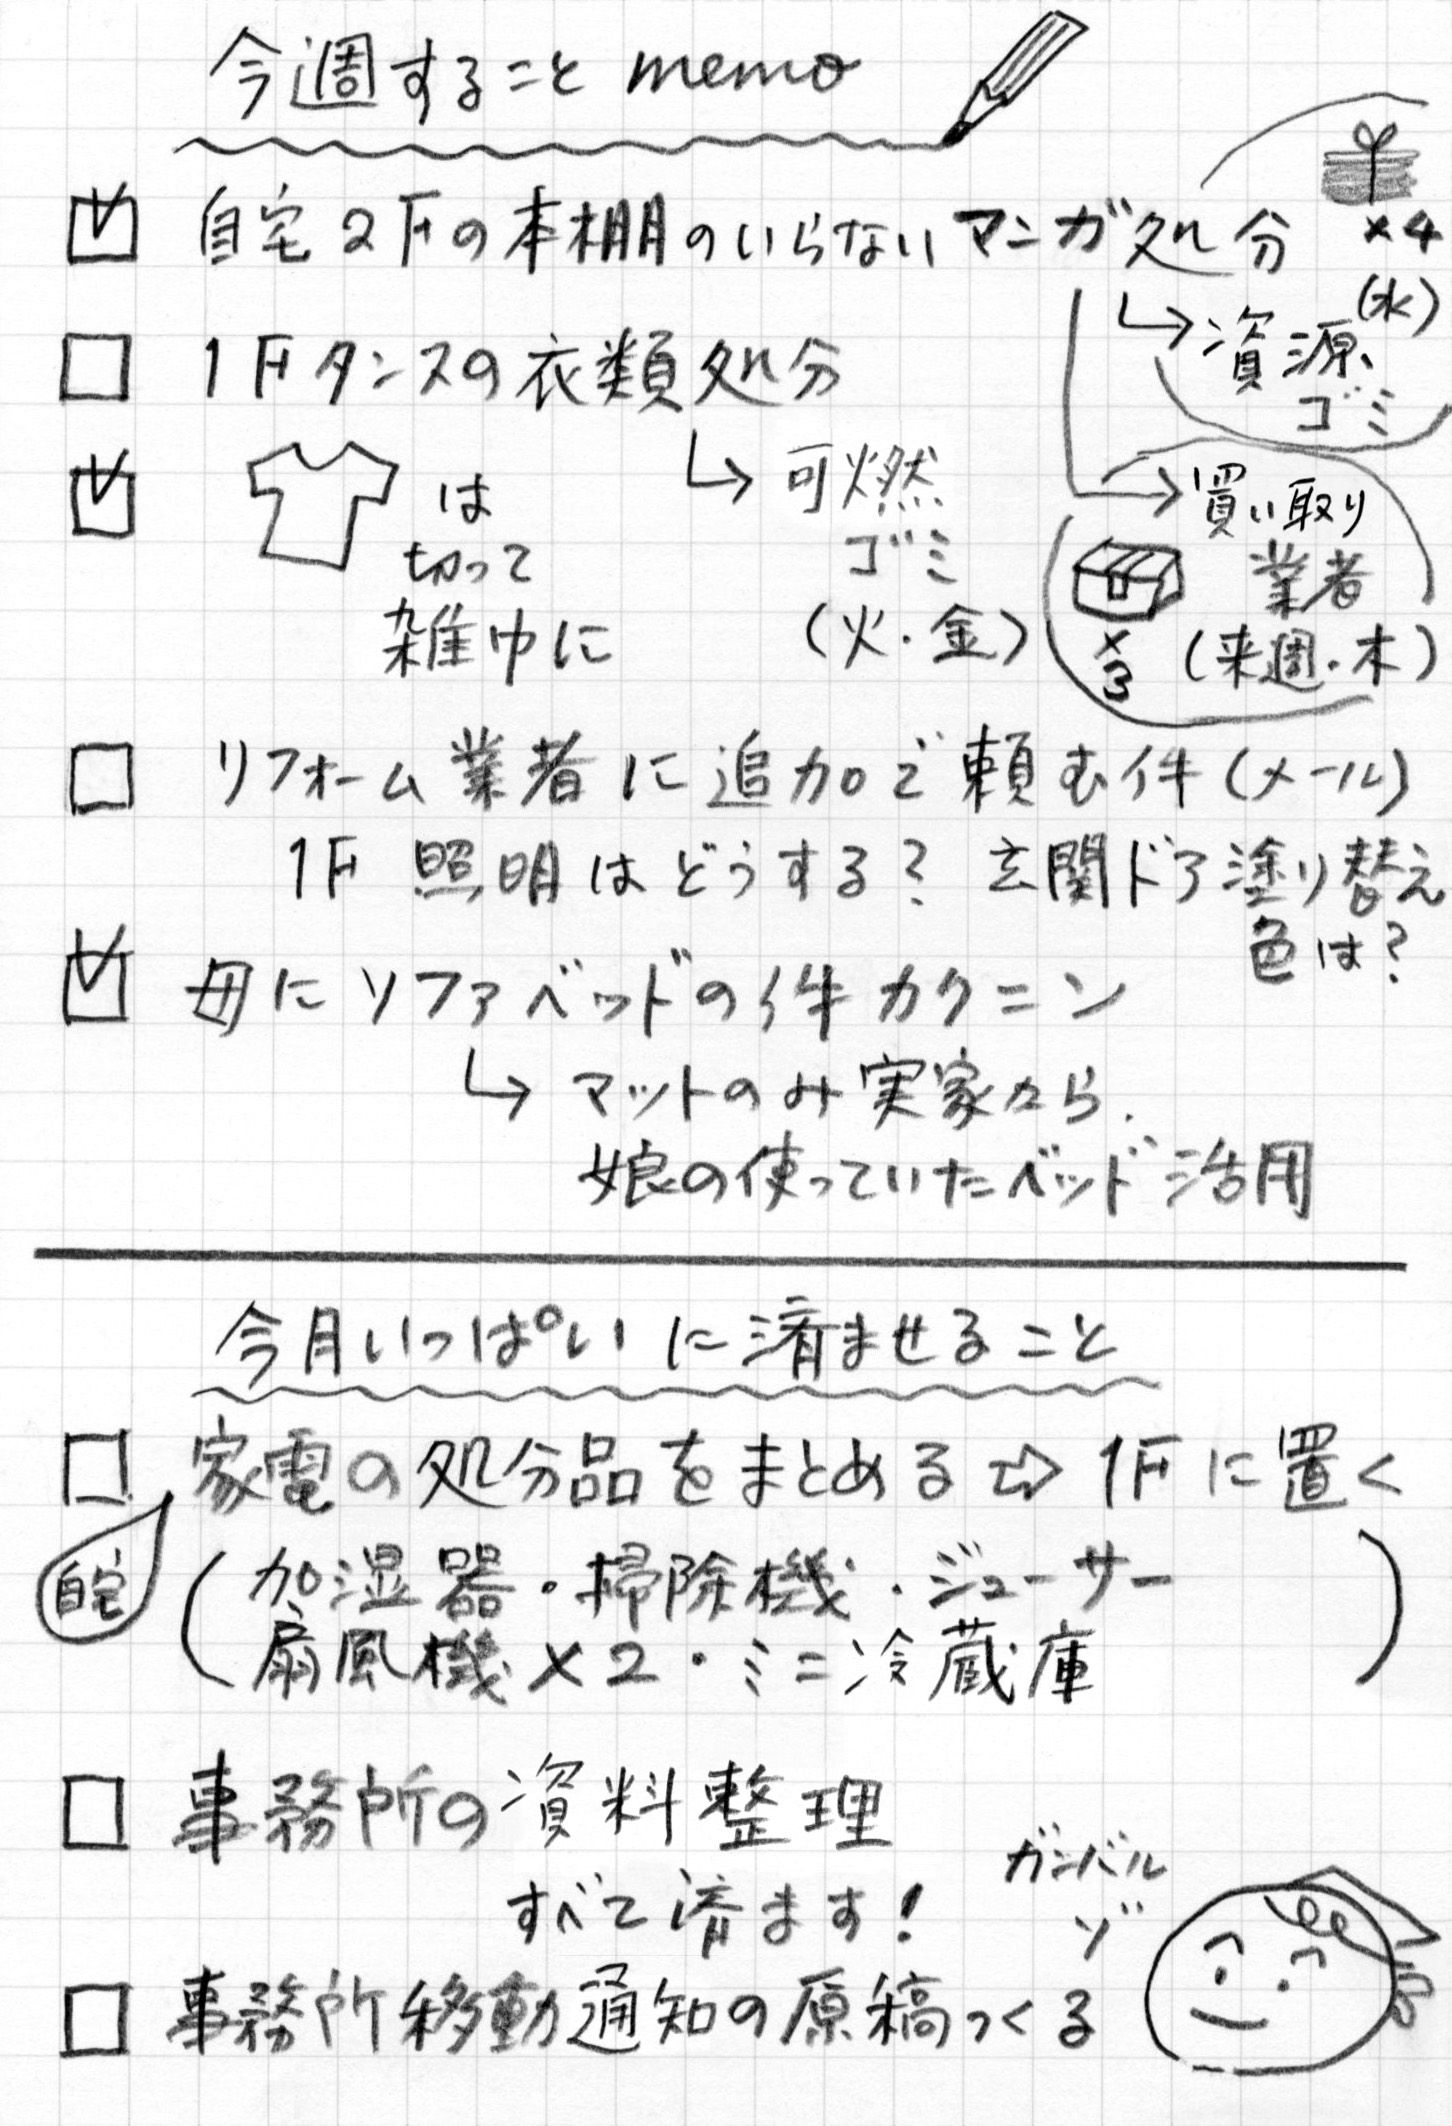 今週すること memo
自宅2Fの本棚のいらないマンガ処分
×4
(水)
資源ゴミ
買い取り
業者
(来週・木)
×3
1Fタンスの衣類処分
可燃
ゴミ
(火・金)
は
切って
雑巾に
リフォーム業者に追加で頼む件(メール)
1F 照明はどうする? 玄関ドア塗り替え
色は?
母にソファベッドの件カクニン
マットのみ実家から.
娘の使っていたベッド活用
今月いっぱいに済ませること
家電の処分品をまとめる⇨1Fに置く
自宅
(加湿器・掃除機・ジューサー
扇風機×2・ミニ冷蔵庫)
事務所の資料整理
すべて済ます!
ガンバル
ゾ
事務所移動通知の原稿つくる